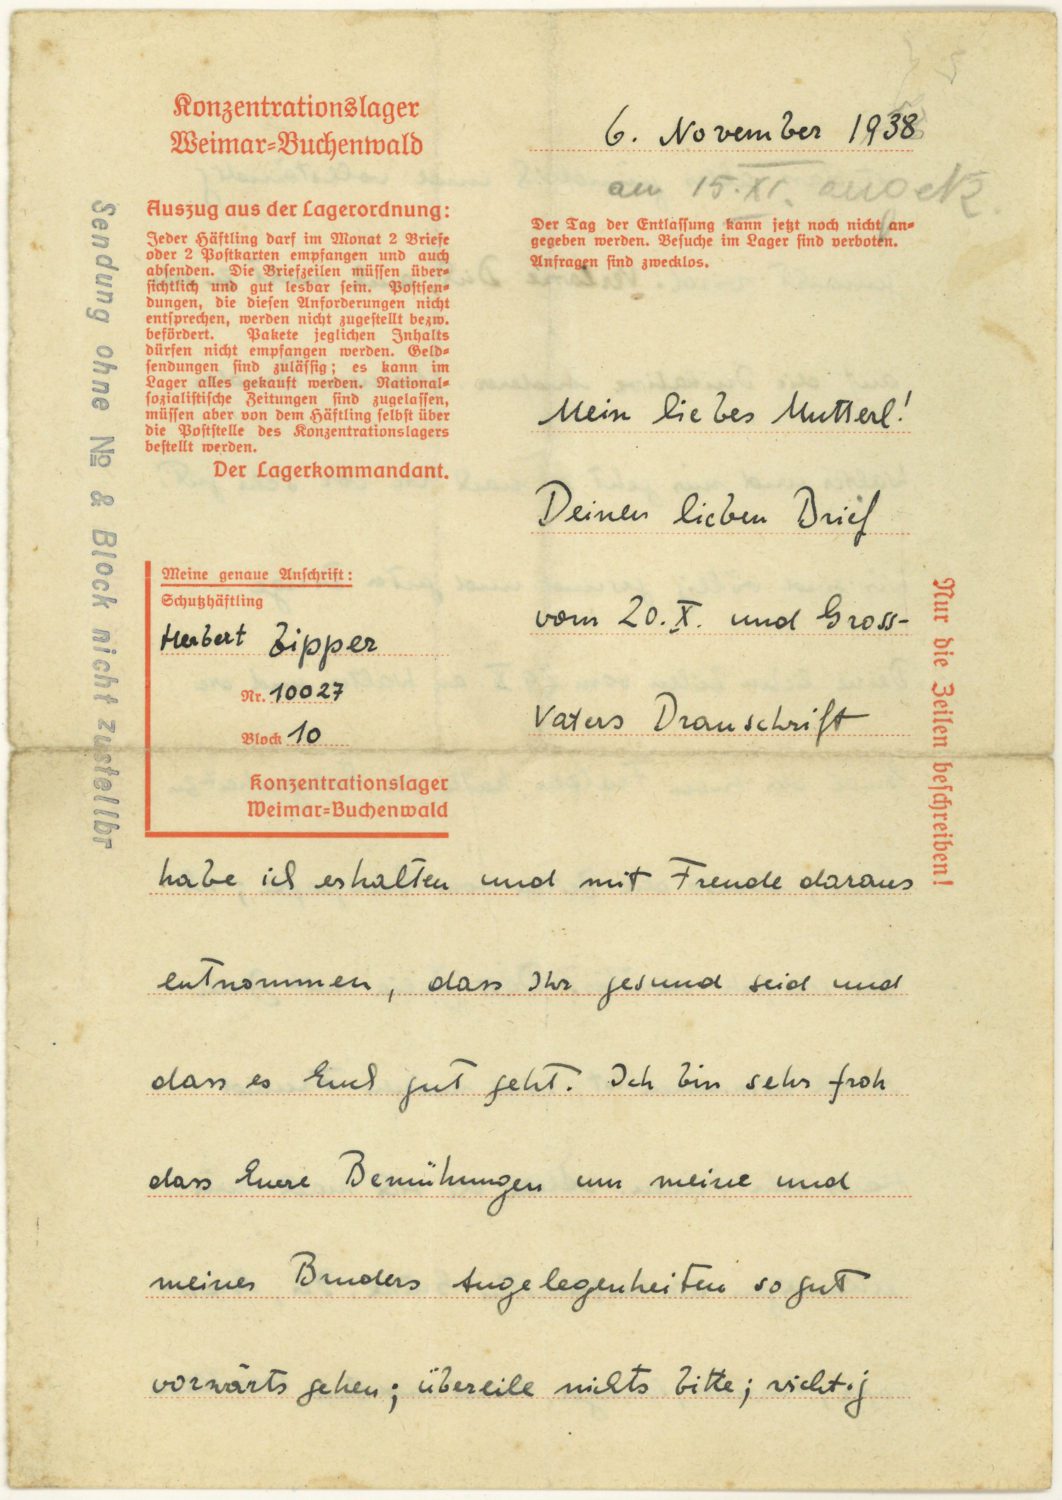 Konzentrationslager
Weimar-Buchenwald
6. November 1938
an 15.XI.
Auszug aus der Lagerordnung:
Jeder Häftling darf im Monat 2 Briefe
oder 2 Postkarten empfangen und auch
absenden. Die Briefzeilen müssen über-
sichtlich und gut lesbar sein. Postsen-
dungen, die diesen Anforderungen nicht
entsprechen, werden nicht zugestellt bezw.
befördert. Pakete jeglichen Inhalts
dürfen nicht empfangen werden. Geld-
sendungen sind zulässig; es kann im
Lager alles gekauft werden. National-
sozialistische Zeitungen sind zugelassen,
müssen aber von dem Häftling selbst über
die Poststelle des Konzentrationslagers
bestellt werden.
Der Lagerkommandant.
Der Tag der Entlassung kann jetzt noch nicht an-
gegeben werden. Besuche im Lager sind verboten.
Anfragen sind zwecklos.
Sendung ohne No & Block nicht zustellbr
Meine genaue Anschrift:
Schutzhäftling
Herbert Zipper
Nr. 10027
Block 10
Konzentrationslager
Weimar-Buchenwald
Nur die Zeilen beschreiben!
Mein liebes Mutterl!
Deinen lieben Brief
vom 20.X. und Gross-
Vaters Dranschrift
habe ich erhalten und mit Freude daraus
entnommen, dass Ihr gesund seid und
dass es Euch gut geht. Ich bin sehr froh
dass Euere Bemühungen um meine und
meines Bruders Angelegenheiten so gut
vorwärts gehen; übereile nichts bitte; richtig